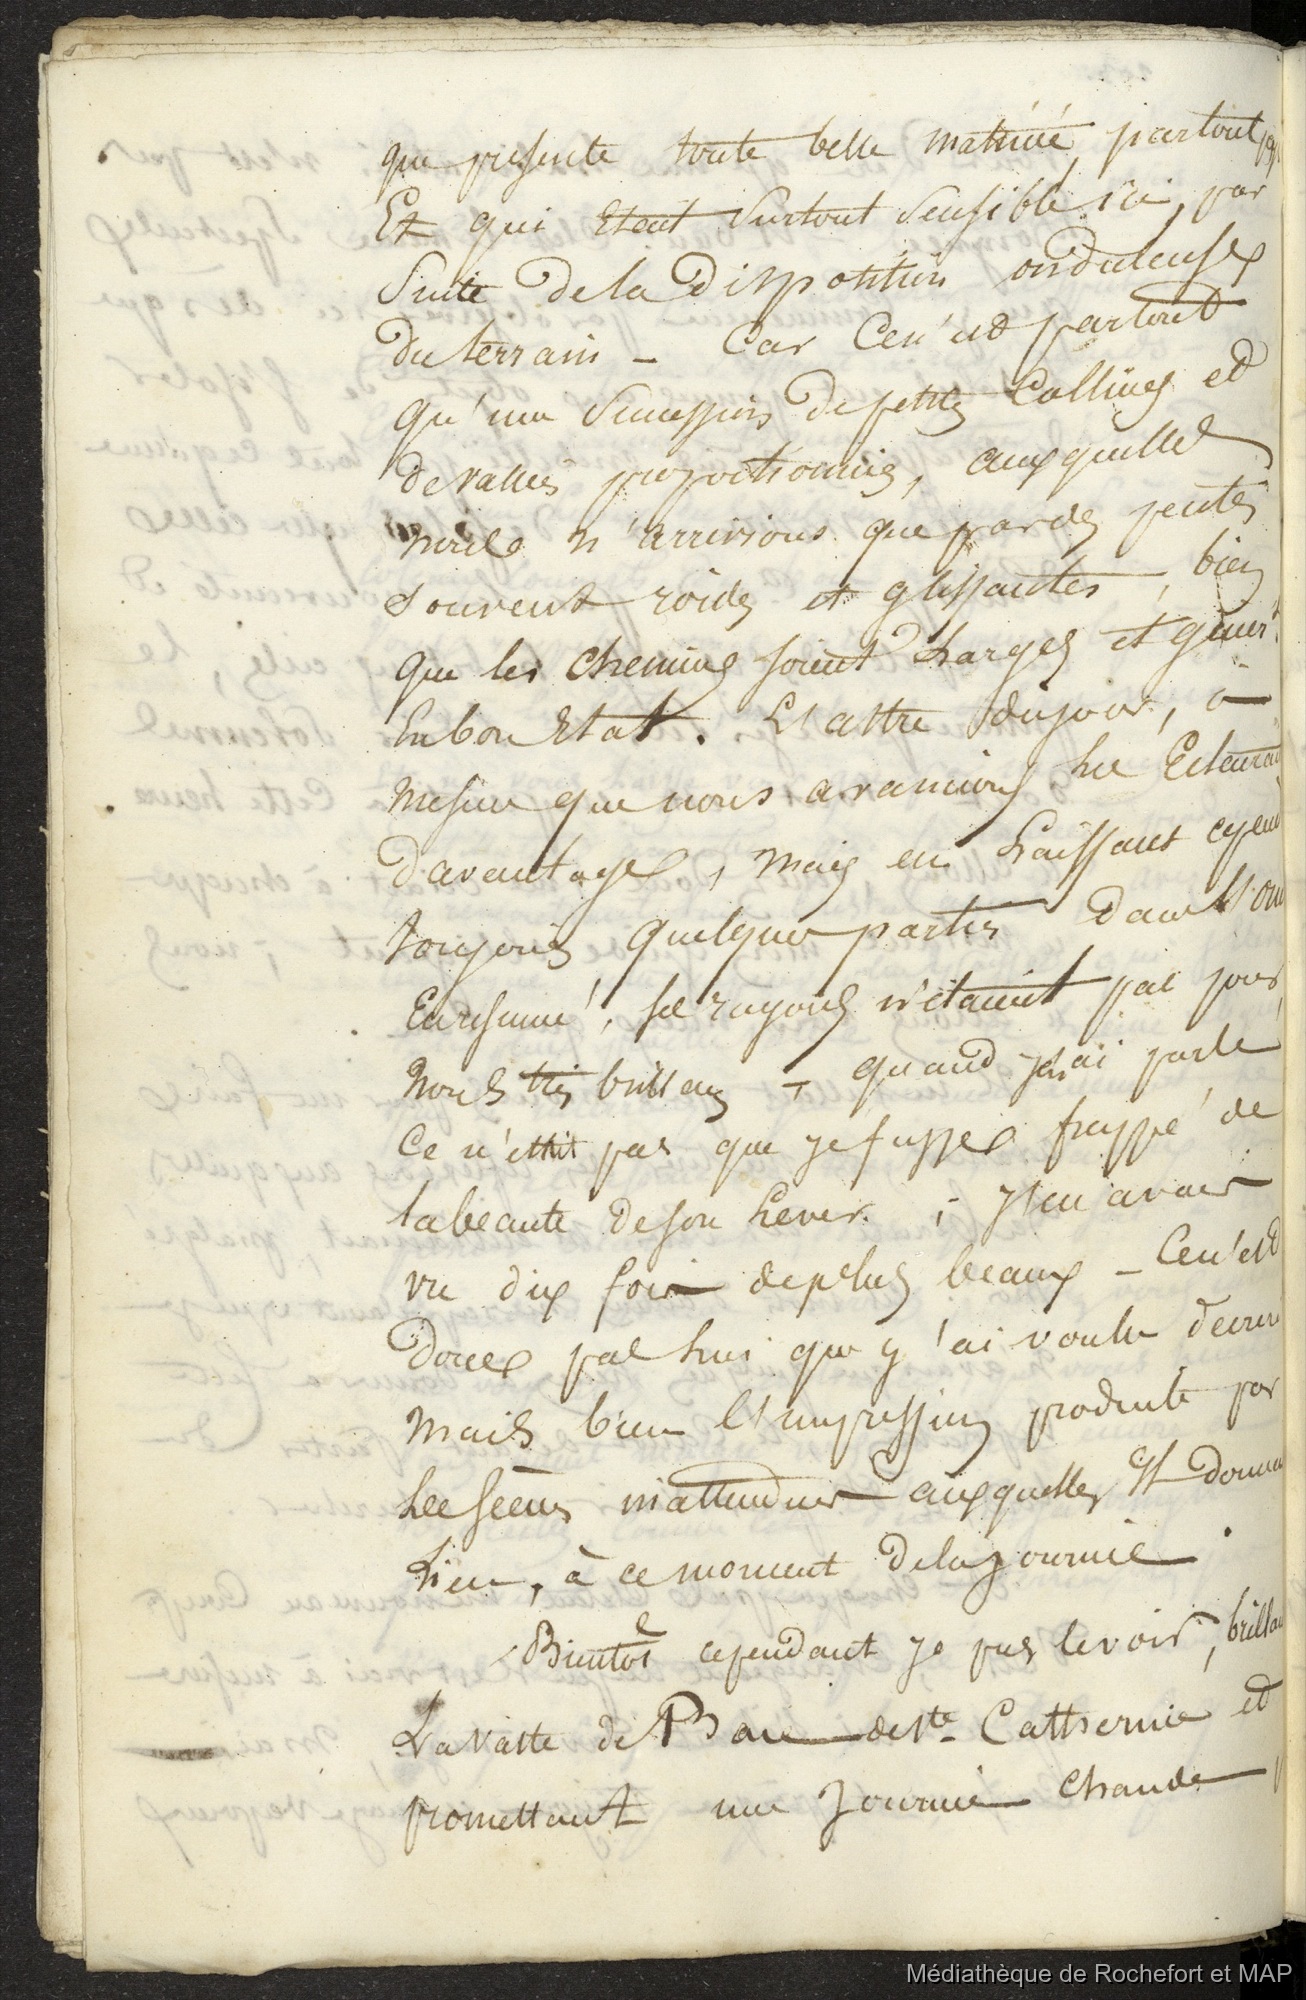 que presente toute belle matinée, partout
Et qui Etait Surtout Sensible ici, par
Suite de la Disposition onduleuse
du terrain - Car Ce n'est partout
qu'une Succession de petites Collines et
de vallées proportionnées, auxquelles
nous n'arrivions que par des pentes
souvent roides et glissantes, bien
que les Chemins soient Larges et génér.t
En bon Etat. L'astre du jour, à
mesure que nous avancions les Eclairai
davantage, mais en Laissant cepend
toujours quelques parties dans l'om
En résumé, ses rayons n'étaient pas pour
nous très brillans - quand j'en ai parlé
Ce n'était pas que je fusse frappé de
la beauté de son Lever ; j'en avais
vu dix fois de plus beaux - Ce n'est
donc pas lui que j'ai voulu décrire
mais bien l'impression produite par
Les scènes inattendues auxquelles Il donna
Lieu, à ce moment de la journée.
Bientot cependant je pus le voir, brillan
La vaste de Baie de Ste Catherine et
promettant une Journée Chaude
Médiathèque de Rochefort et MAP